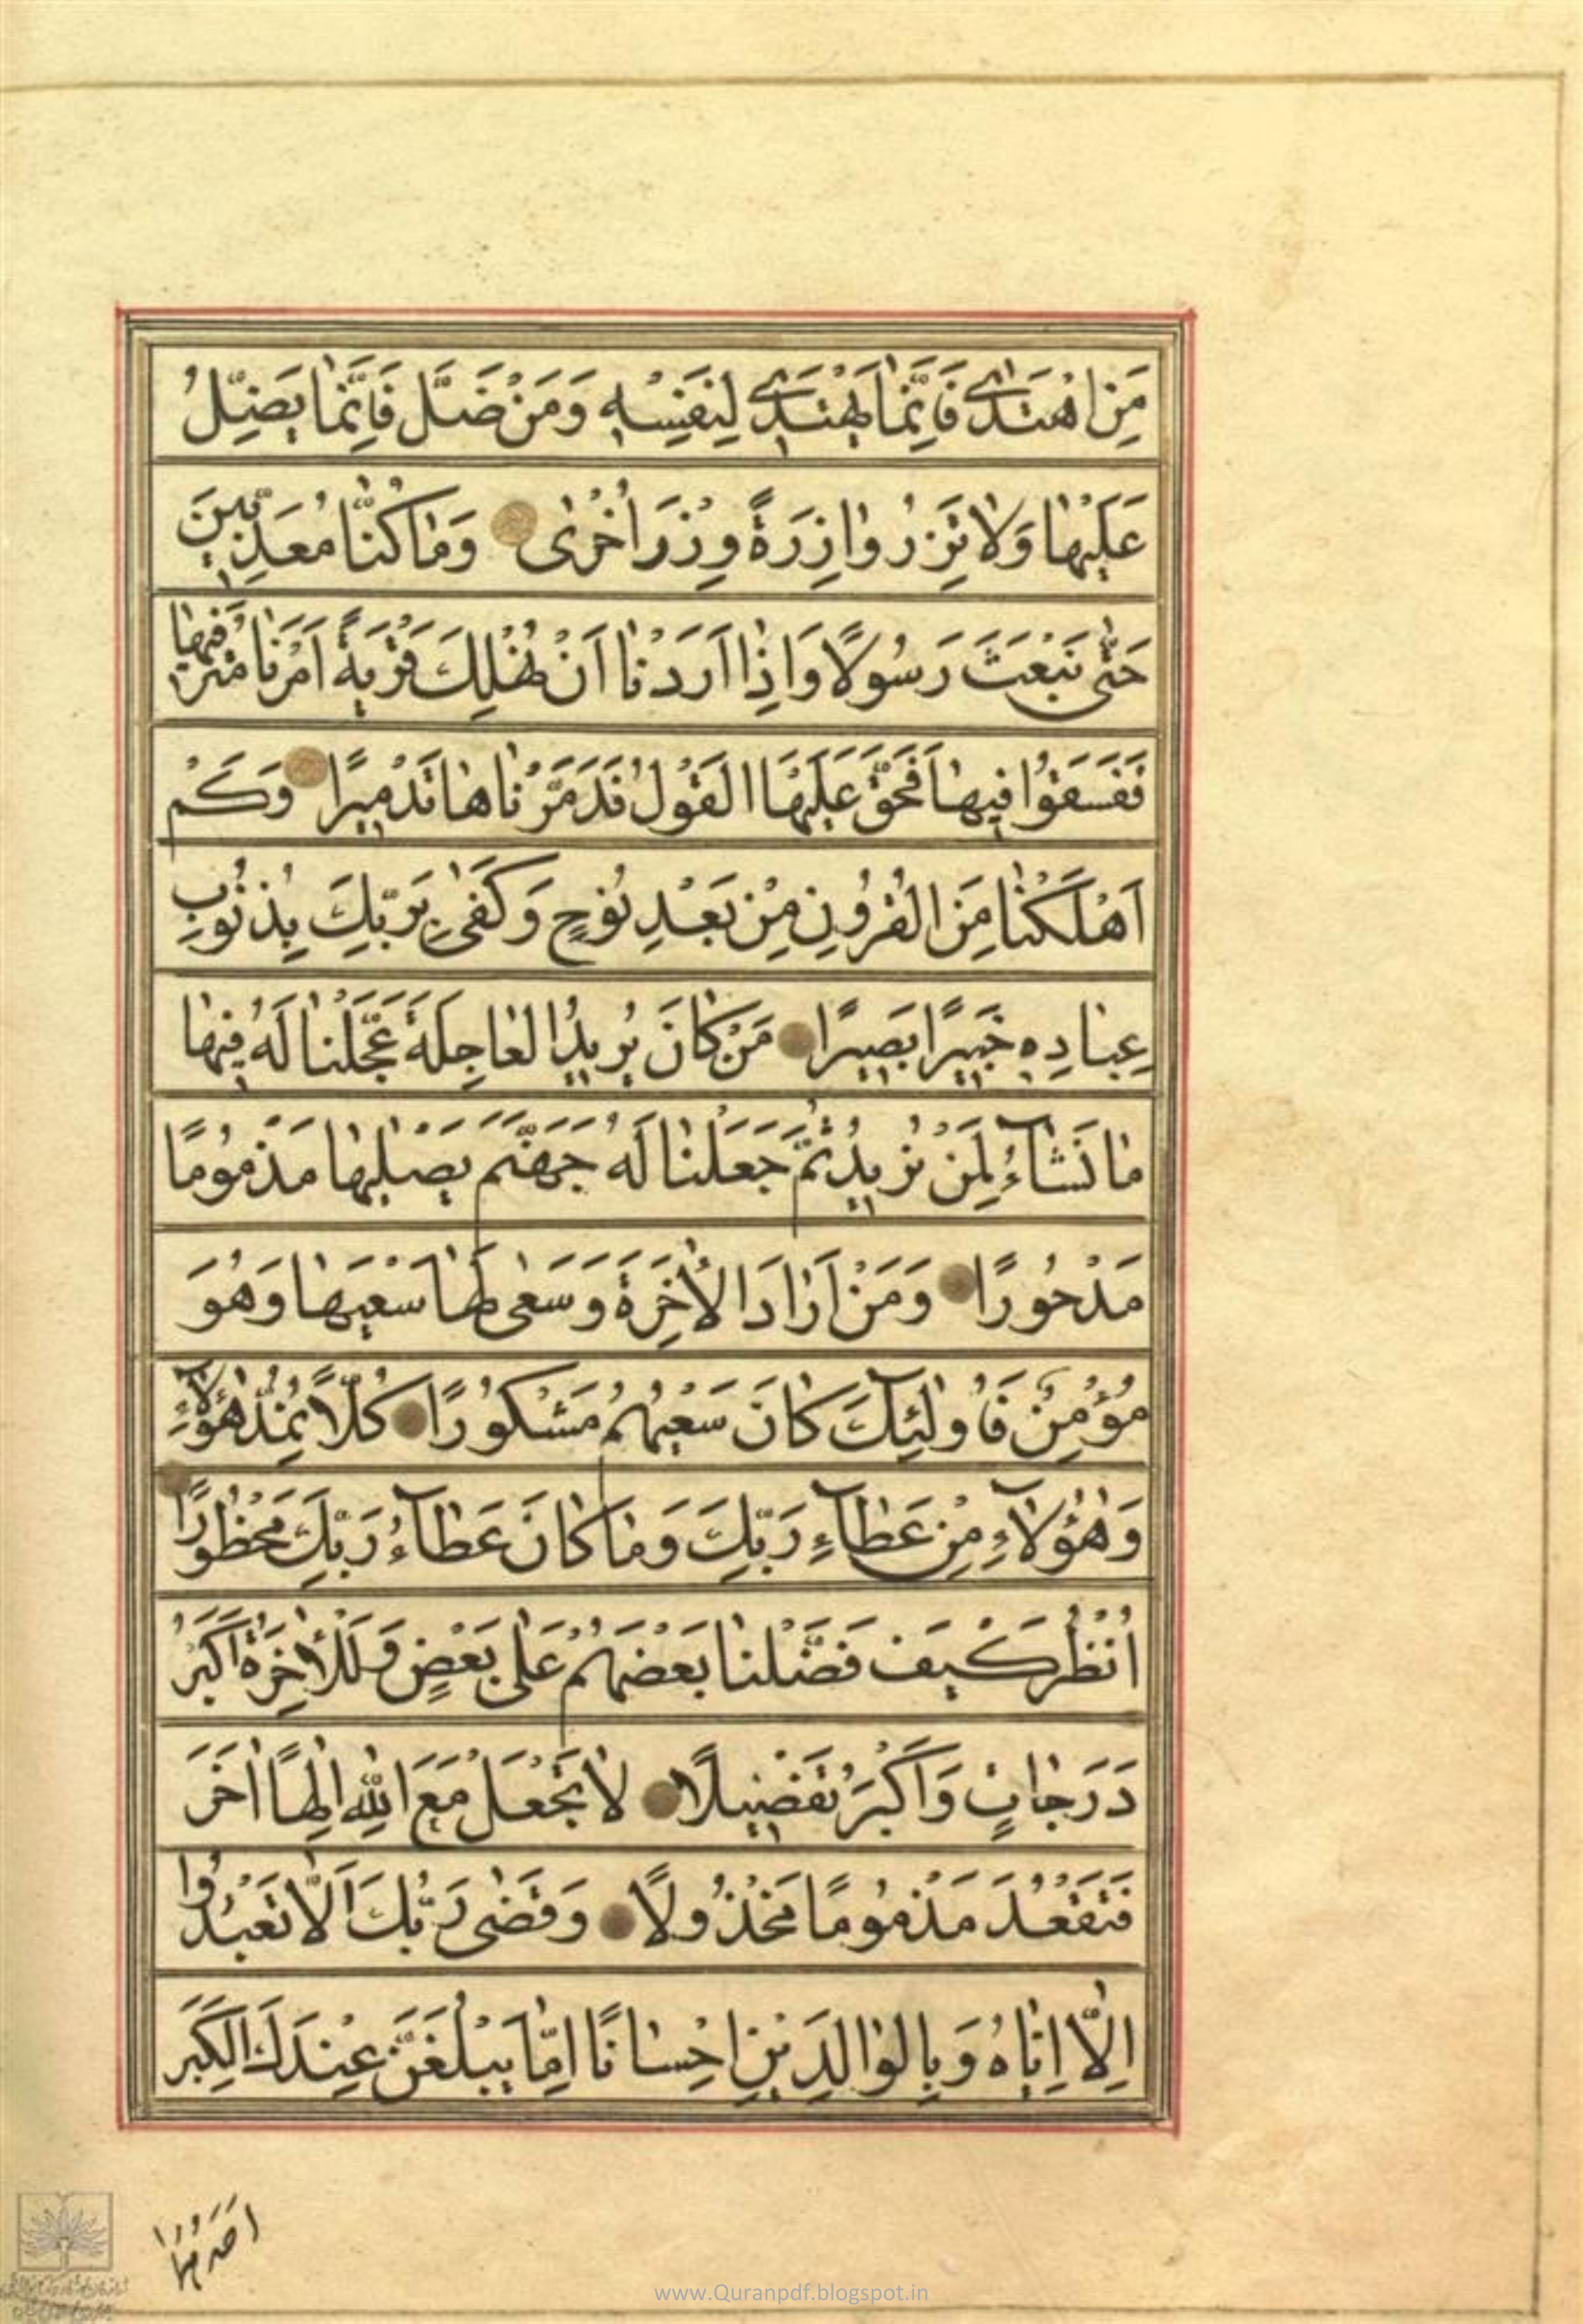 مَنِ اهْتَدٰى فَاِنَّمٰا يَهْتَدٰى لِنَفْسِهٖ وَمَنْ ضَلَّ فَاِنَّمٰا يَضِلُّ
عَلَيْهٰا وَلٰا تَزِرُ وٰازِرَةٌ وِزْرَ اُخْرٰى وَمٰا كُنّٰا مُعَذِّبِينَ
حَتّٰى نَبْعَثَ رَسُولًا وَاِذٰا اَرَدْنٰا اَنْ نُهْلِكَ قَرْيَةً اَمَرْنٰا مُتْرَفِيهٰا
فَفَسَقُوا فِيهٰا فَحَقَّ عَلَيْهَا الْقَوْلُ فَدَمَّرْنٰاهٰا تَدْمِيرًا وَكَمْ
اَهْلَكْنٰا مِنَ الْقُرُونِ مِنْ بَعْدِ نُوحٍ وَكَفٰى بِرَبِّكَ بِذُنُوبِ
عِبٰادِهٖ خَبِيرًا بَصِيرًا مَنْ كٰانَ يُرِيدُ الْعٰاجِلَةَ عَجَّلْنٰا لَهُ فِيهٰا
مٰا نَشٰآءُ لِمَنْ نُرِيدُ ثُمَّ جَعَلْنٰا لَهُ جَهَنَّمَ يَصْلٰيهٰا مَذْمُومًا
مَدْحُورًا وَمَنْ اَرٰادَ الْاٰخِرَةَ وَسَعٰى لَهٰا سَعْيَهٰا وَهُوَ
مُؤْمِنٌ فَاُولٰٓئِكَ كٰانَ سَعْيُهُمْ مَشْكُورًا كُلًّا نُمِدُّ هٰؤُلٰٓاءِ
وَهٰؤُلٰآءِ مِنْ عَطٰآءِ رَبِّكَ وَمٰا كٰانَ عَطٰآءُ رَبِّكَ مَحْظُورًا
اُنْظُرْ كَيْفَ فَضَّلْنٰا بَعْضَهُمْ عَلٰى بَعْضٍ وَلَلْاٰخِرَةُ اَكْبَرُ
دَرَجٰاتٍ وَاَكْبَرُ تَفْضِيلًا لٰا تَجْعَلْ مَعَ اللّٰهِ اِلٰهًا اٰخَرَ
فَتَقْعُدَ مَذْمُومًا مَخْذُولًا وَقَضٰى رَبُّكَ اَلّٰا تَعْبُدُوا
اِلّٰا اِيّٰاهُ وَبِالْوٰالِدَيْنِ اِحْسٰانًا اِمّٰا يَبْلُغَنَّ عِنْدَكَ الْكِبَرَ
اَحَدُهُمٰا
www.Quranpdf.blogspot.in